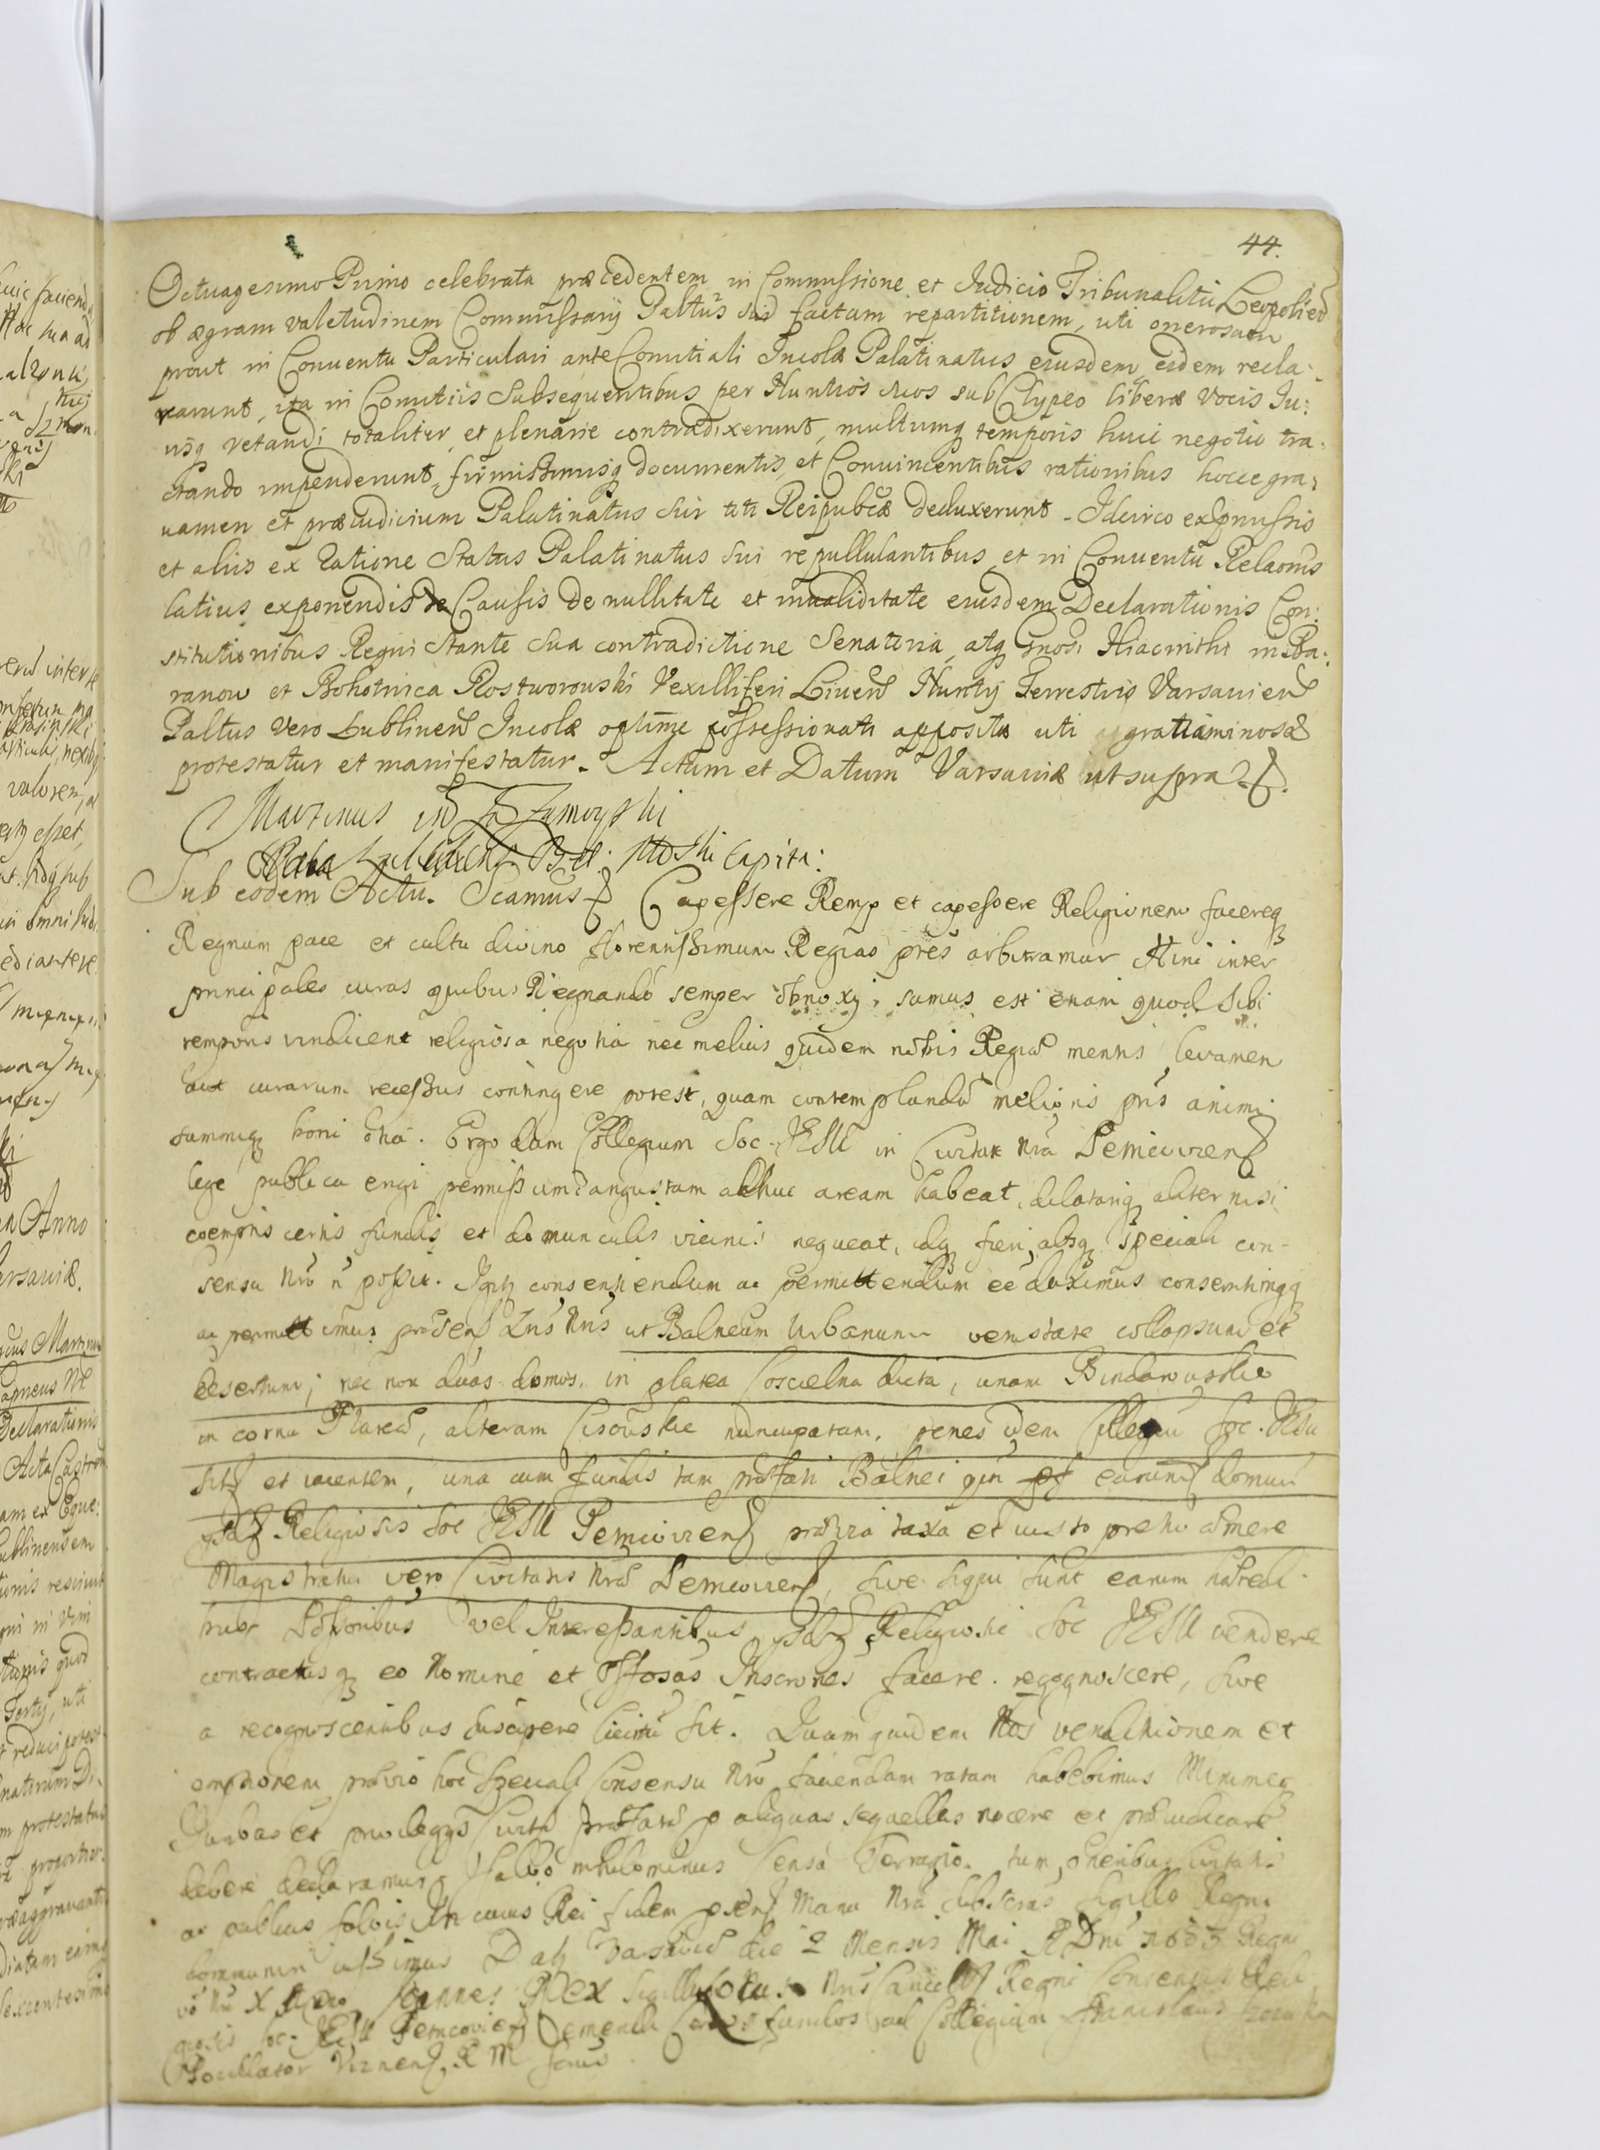 44.
Octuagesimo Primo celebrata præcedentem in Commissione et Judicio Tribunalitio Leopolien
ob ægram valetudinem Commissarij Paltus sui factam repartitionem, uti onerosam
prout in Conventu Particulari ante Comitiali Incolæ Palatinatus ejusdem eidem recla-
marunt, ita in Comitiis Subsequentibus per Nuntios suos sub Clypeo liberæ vocis Ju:
risq vetandi totaliter et plenarie contradixerunt, multumq temporis huic negotio tra-
ctando impenderunt, firmissimisq documentis, et Convincentibus rationibus hocce gra:
vamen et præjudicium Palatinatus sui toti Reipubcæ deduxerunt. Idcirco expmissis
et aliis ex ratione Status Palatinatus sui repullulantibus, et in Conventu Relaonis
latius exponendis de Causis de nullitate et invaliditate ejusdem Declarationis Con:
stitutionibus Regni Stante sua contradictione Senatoria, atq Gnosi Hiacinthi in Ba:
ranow et Bohotnica Rostworowski Vexilliferi Livens Nuntij Terrestris Varsaviens
Paltus vero Lublinens Incolæ optime possessionati apposita uti aggratiaminosæ
protestatur et manifestatur. Actum et Datum Varsaviæ ut supra.
Martinus in Zamoyski
Palat Lublinens Capita:
Sub eodem Actu. Scamus Capessere Remp et capessere Religionem facereq
Regnum pace et cultu divino florentissimum Regias ptes arbitramur Hinc inter
principales curas quibus Regnando semper obnoxij sumus est etiam quod Sibi
temporis vindicent religiosa negotia nec melius quidem nobis Regiæ mentis levamen
aut curarum recessus contingere potest, quam contemplandæ melioris ptis animi
summiq boni otia. Ergo dum Collegium Soc JESU in Civitate Nra Lemcoviens
lege publica erigi permissum angustam adhuc aream habeat, dilatariq aliter nisi
coemptis certis fundis et domunculis vicinis nequeat, idq fieri absq speciali con-
sensu Nro n possit. Igitq consentiendum ac permittendum ee duximus consentimusqq
ac permittimus psens Lris Nris ut Balneum Urbanum vetustate collapsum et
desertum; nec non duas domos, in platea Coscielna dicta, unam Bindarowskie
in cornu Plateæ, alteram Cisowskie nuncupatam, penes idem Collegiu Soc. JESU
sitas et jacentem, una cum fundis tam præfati Balnei qm earums domus
Religiosis Soc JESU Lemcoviens propria taxa et justo pretio emere
Magistratui vero Civitatis Nræ Lemcoviens, sive siqui sunt earum hæredi-
bus vel Interessantibus Religiosis Soc JESU vendere
contractusq eo Nomine et Inscrones facere. recognoscere, sive
a recognoscentibus suscipere licitu sit. Quam quidem Nos venditionem et
emptionem prævio hoc Speciali Consensu Nro faciendam ratam habebimus Minimeq
Juribus et privilegijs Civita præfatæ p aliquas sequellas nocere et præjudicare
debere declaramus. Salvo nihilominus Censu Terragio. tum oneribus Civitatis
ac publicis solvis In cuius Rei fidem psens Manu Nra subscras sigillo Regni
communiri jussimus Dat Varsaviæ die 2 Mensis Mai A Dni 1683 Regni
vo Nri X Anno Joannes Rex Nris Regni Consensus Reli
giosis Soc JESU Lemcoviens emendi certos fundos ad Collegium Stanislaus
Viznens R M